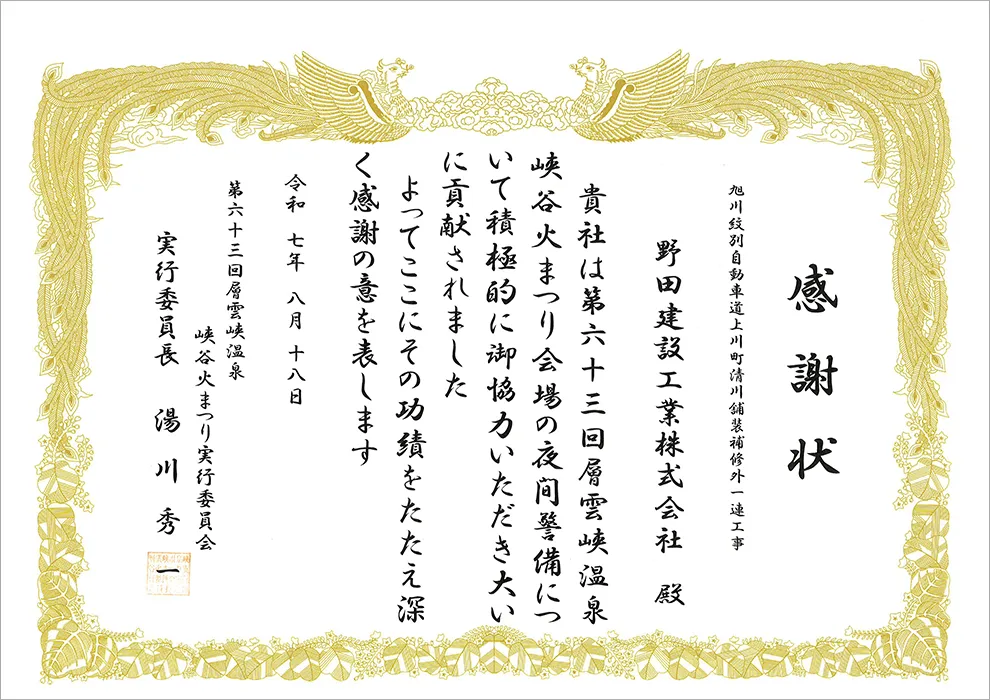 感謝状
旭川紋別自動車道上川町清川舗装補修外一連工事
野田建設工業株式会社 殿
貴社は第六十三回層雲峡温泉
峡谷火まつり会場の夜間警備につ
いて積極的に御協力いただき大い
に貢献されました
よってここにその功績をたたえ深
く感謝の意を表します
令和 七年 八月 十八日
第六十三回層雲峡温泉
峡谷火まつり実行委員会
実行委員長 湯川秀一